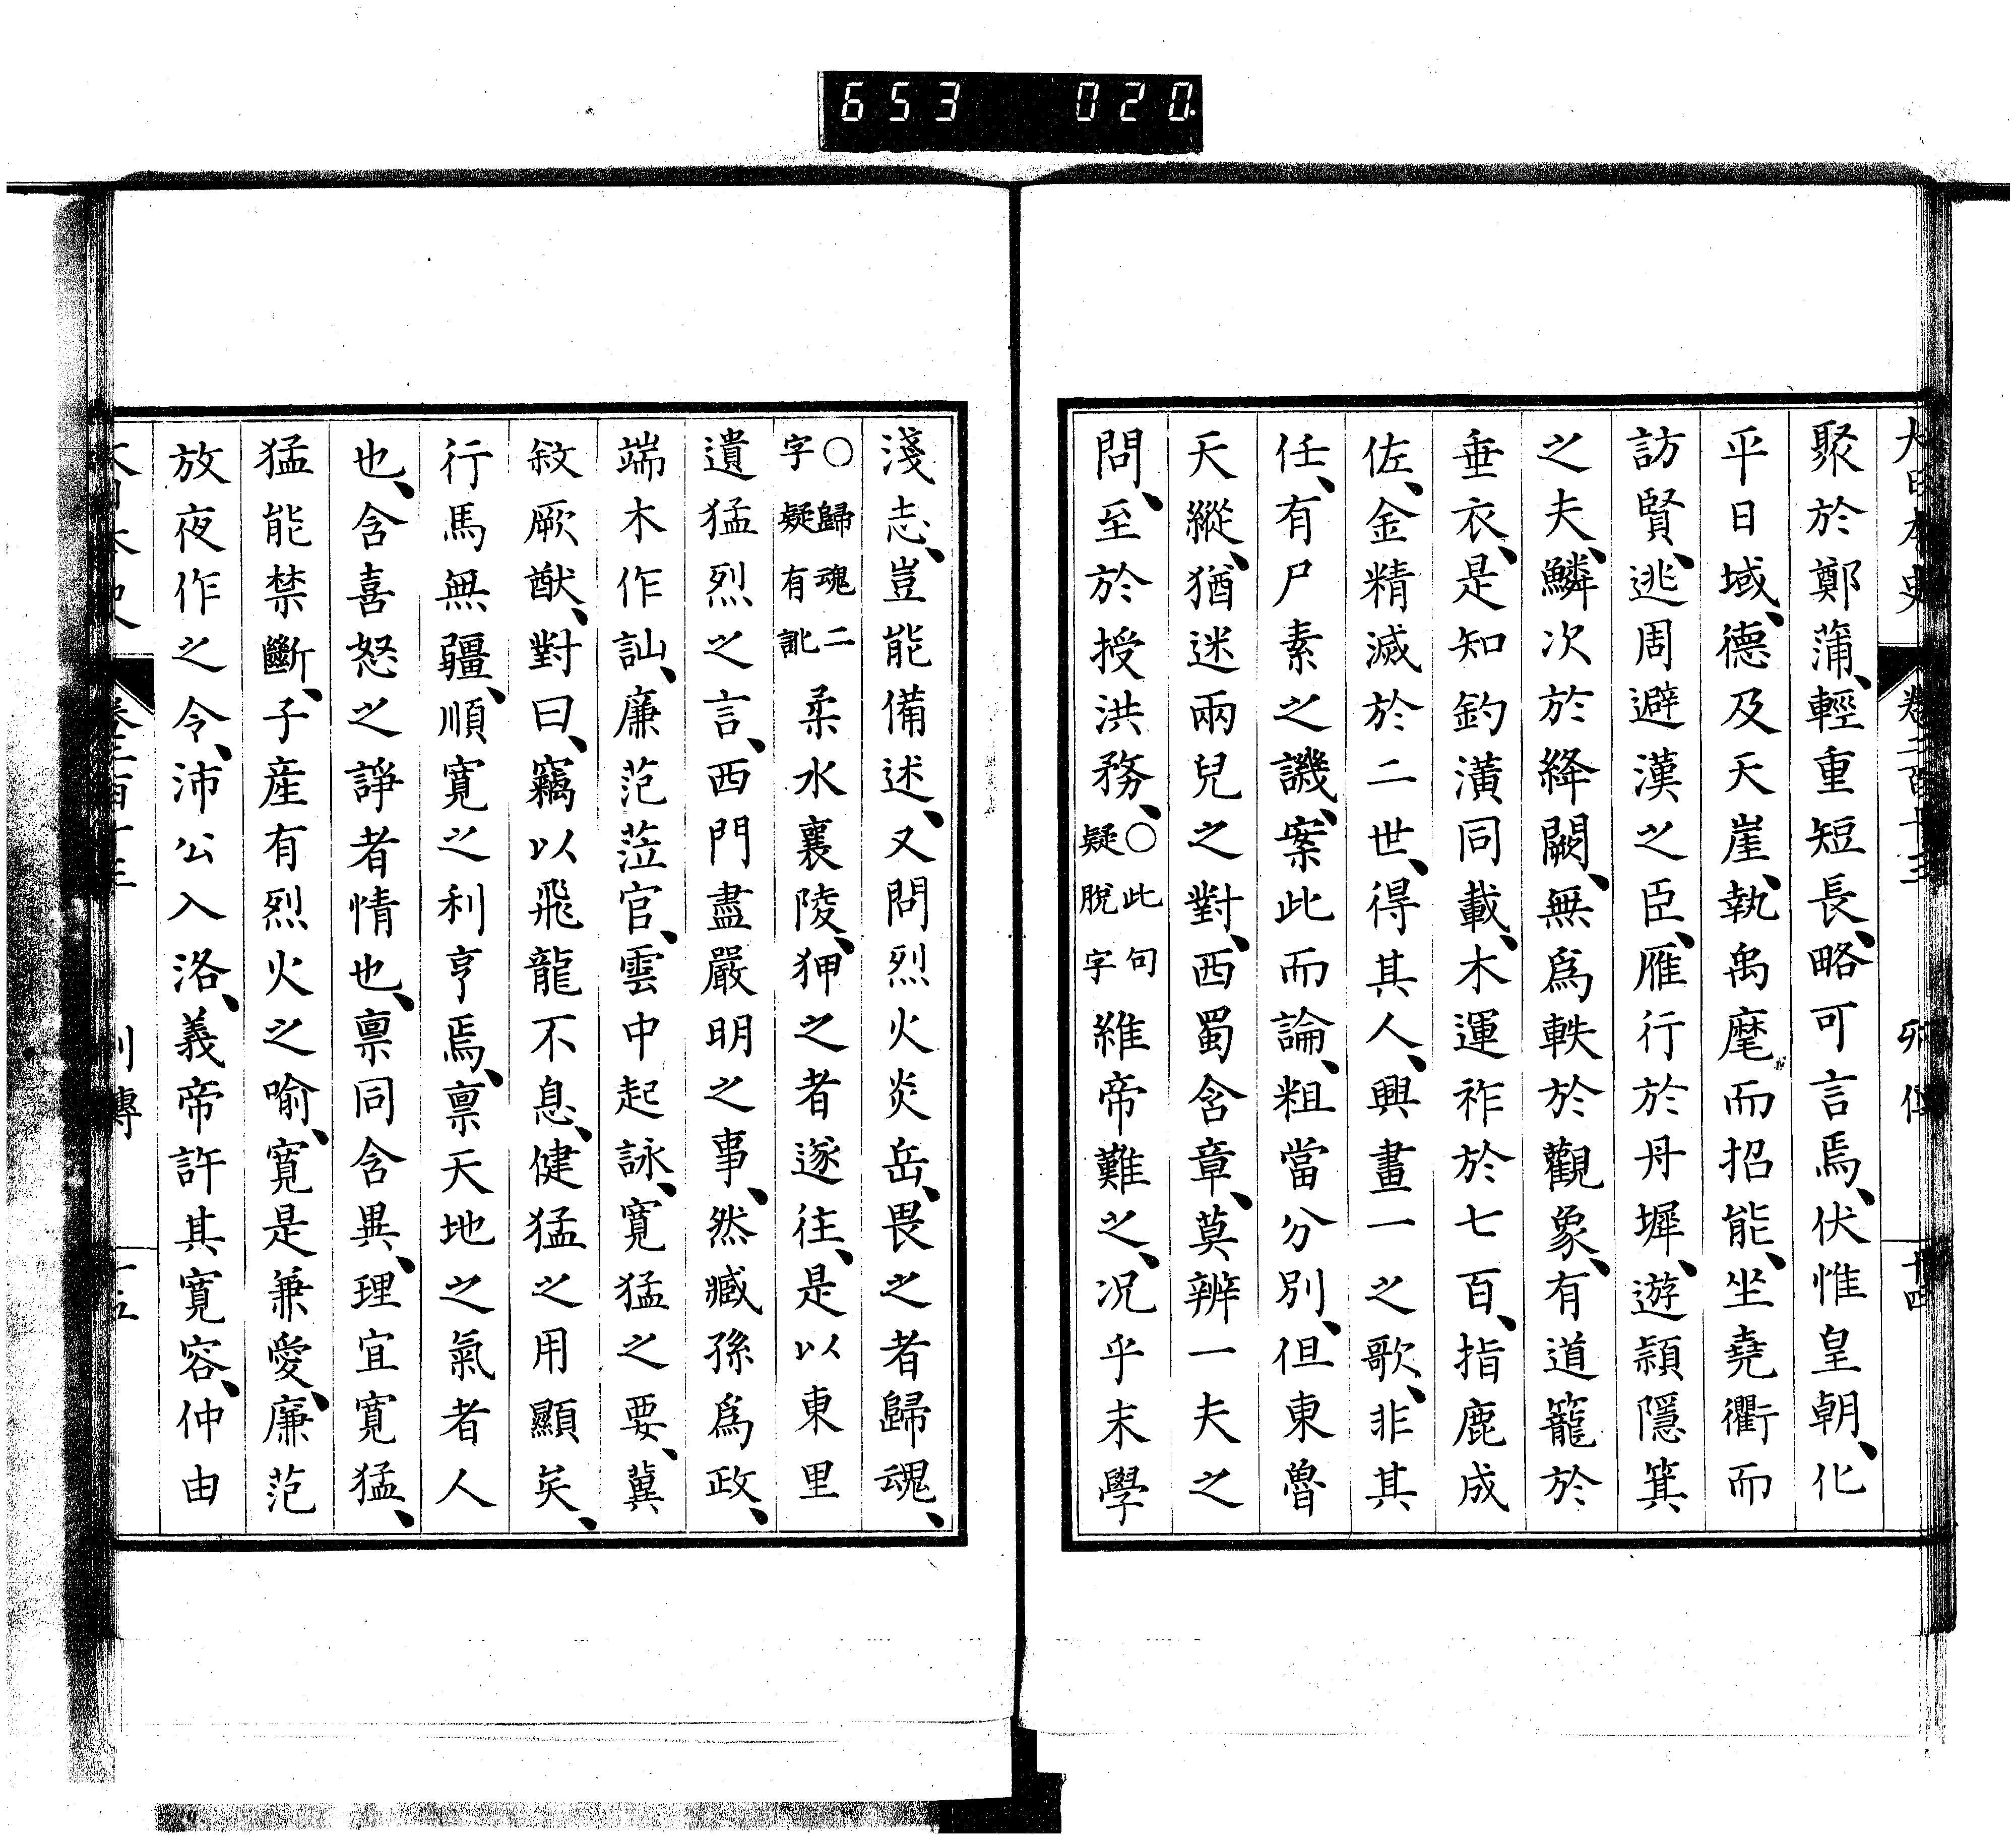 653 020
大日本史 卷二百十三 列傳 十四
聚於鄭蒲、輕重短長、略可言焉、伏惟皇朝、化
平日域、德及天崖、執禹麾而招能、坐堯衢而
訪賢、逃周避漢之臣、雁行於丹墀、遊潁隱箕
之夫、鱗次於絳闕、無爲軼於觀象、有道籠於
垂衣、是知釣潢同載、木運祚於七百、指鹿成
佐、金精滅於二世、得其人、興畫一之歌、非其
任、有尸素之譏、案此而論、粗當分別、但東魯
天縱、猶迷兩兒之對、西蜀含章、莫辨一夫之
問、至於授洪務、○此句疑脫字維帝難之、况乎末學
淺志、豈能備述、又問烈火炎岳、畏之者歸魂、
○歸魂二字疑有訛柔水襄陵、狎之者遂往、是以東里
遺猛烈之言、西門盡嚴明之事、然臧孫爲政、
端木作訕、廉范蒞官、雲中起詠、寬猛之要、冀
敘厥猷、對曰、竊以飛龍不息、健猛之用顯矣、
行馬無疆、順寬之利亨焉、禀天地之氣者人
也、含喜怒之諍者情也、禀同含異、理宜寬猛、
猛能禁斷、子產有烈火之喻、寬是兼愛、廉范
放夜作之令、沛公入洛、義帝許其寬容、仲由
大日本史 卷二百十三 列傳 十五